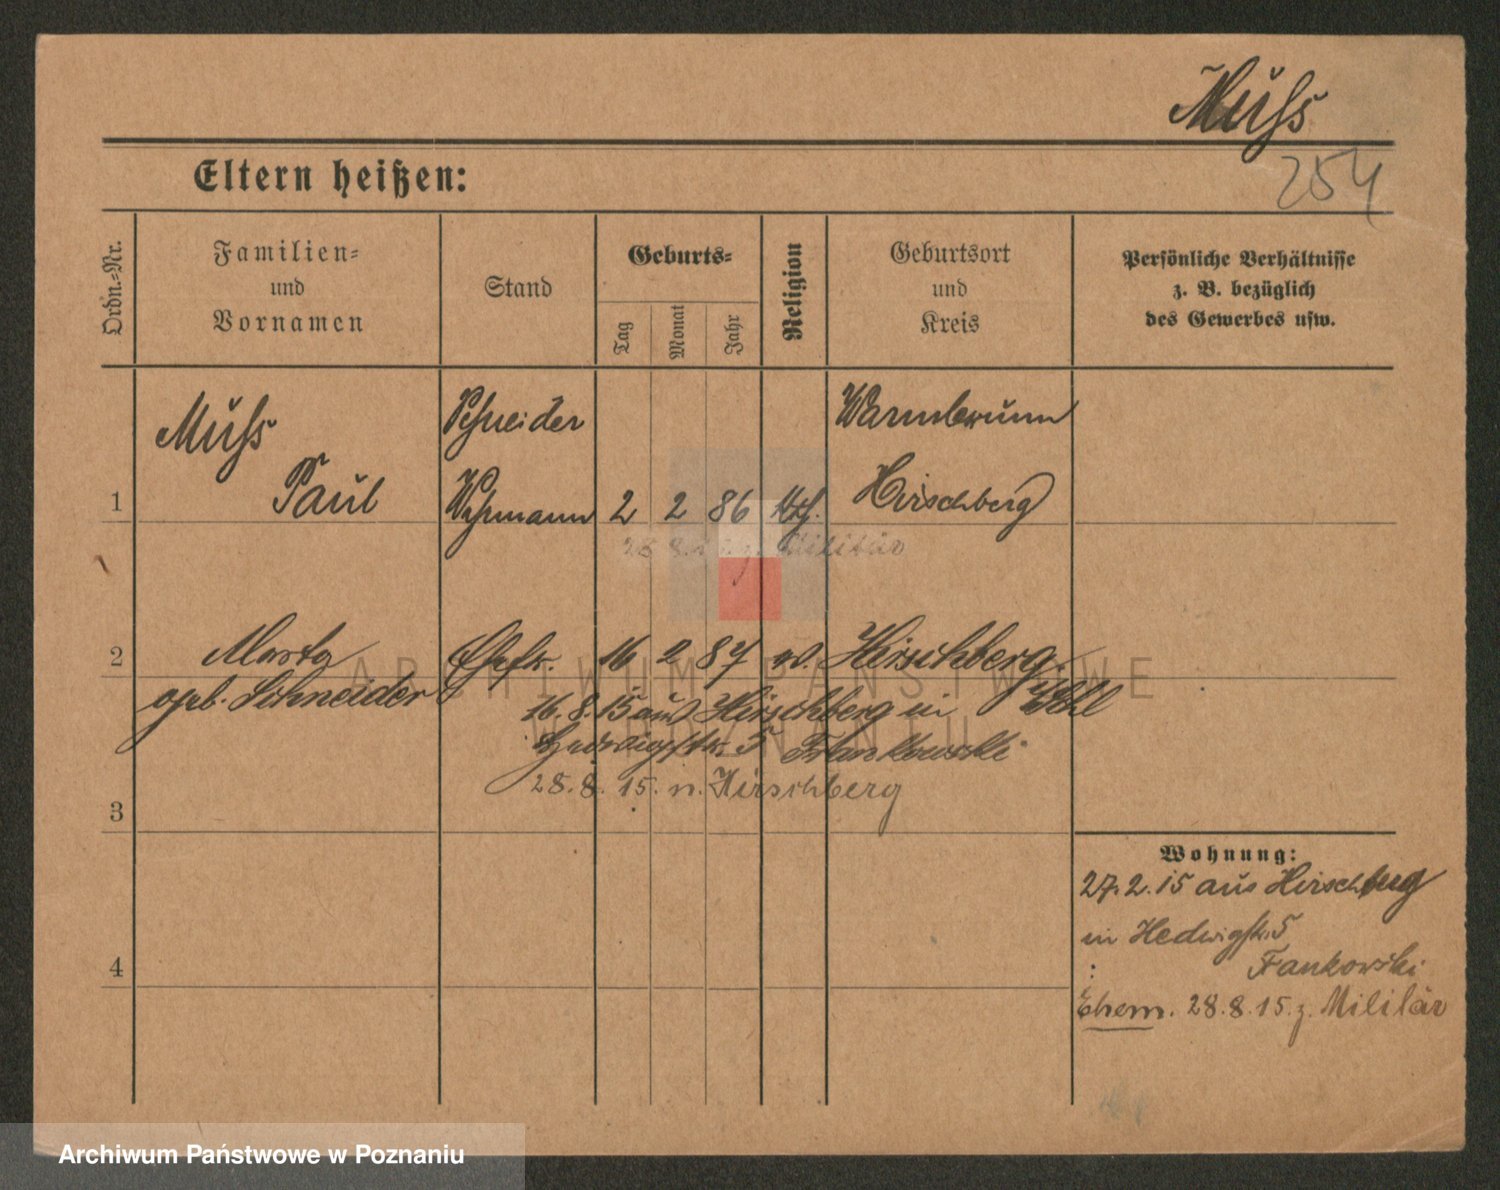 Muſs
254
Eltern heißen:
Ordn.=Nr.
Familien=
und
Vornamen
Stand
Geburts=
Tag
Monat
Jahr
Religion
Geburtsort
und
Kreis
Persönliche Verhältnisse
z. B. bezüglich
des Gewerbes usw.
1
Muſs
Paul
Schneider
Wehrmann
2 2 86 kth.
Warmbrunn
Hirschberg
28.8. z. Militär
2
Marta
geb. Schneider
Ehefr.
16 2 87 w. Hirschberg
16.8.15 aus Hirschberg in
Hedwigstr. 5 Frankowski
28.8.15. n. Hirschberg
3
4
Wohnung:
27.2.15 aus Hirschberg
in Hedwigstr. 5
Frankowski
Ehem. 28.8.15. z. Militär
ARCHIWUM PAŃSTWOWE
W POZNANIU
Archiwum Państwowe w Poznaniu